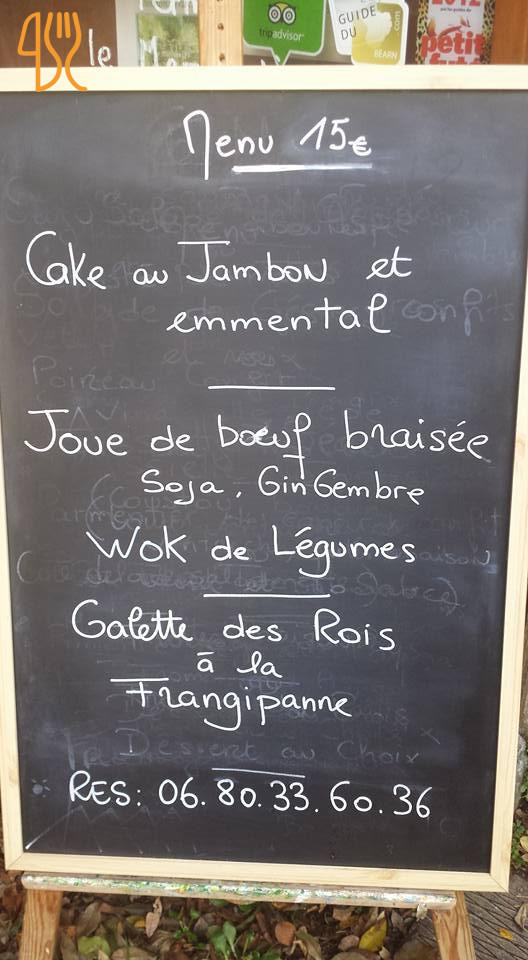 le
tripadvisor
GUIDE
DU
BEARN
petit
Menu 15€
Cake au Jambon et
emmental
Joue de bœuf braisée
Soja, GinGembre
Wok de Légumes
Galette des Rois
à la
Frangipanne
Dessert au Choix
RES: 06.80.33.60.36